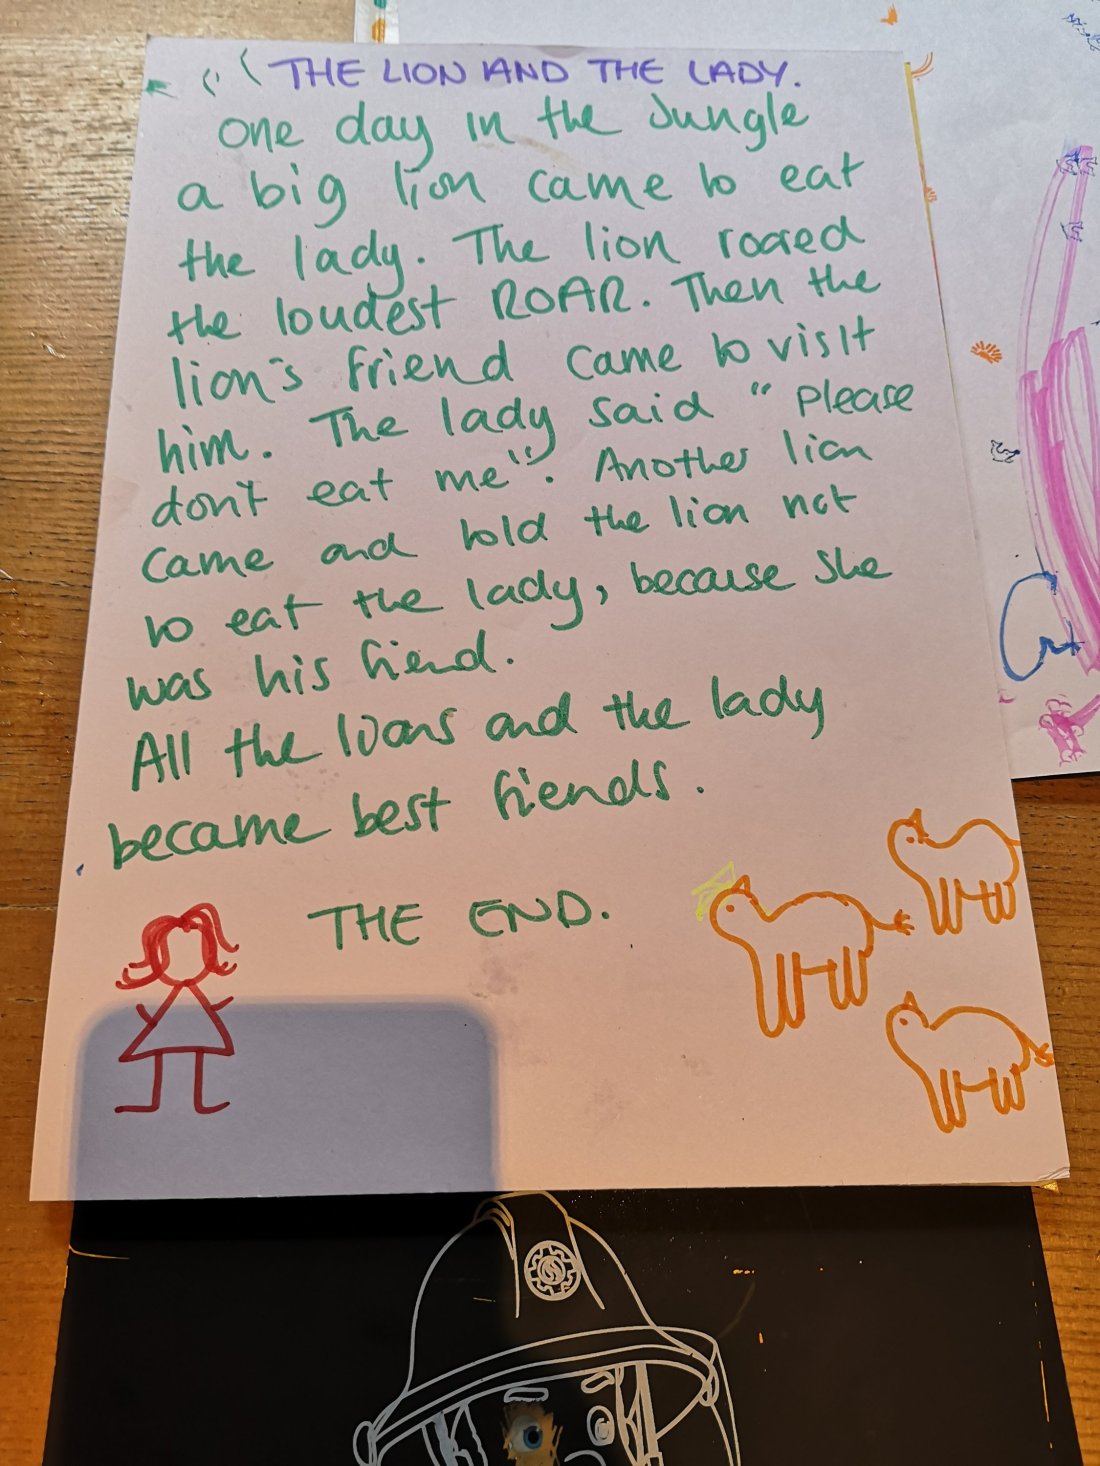 THE LION AND THE LADY.
One day in the Jungle
a big lion came to eat
the lady. The lion roared
the loudest ROAR. Then the
lion's friend came to visit
him. The lady said "please
don't eat me". Another lion
came and told the lion not
to eat the lady, because she
was his friend.
All the lions and the lady
became best friends.
THE END.